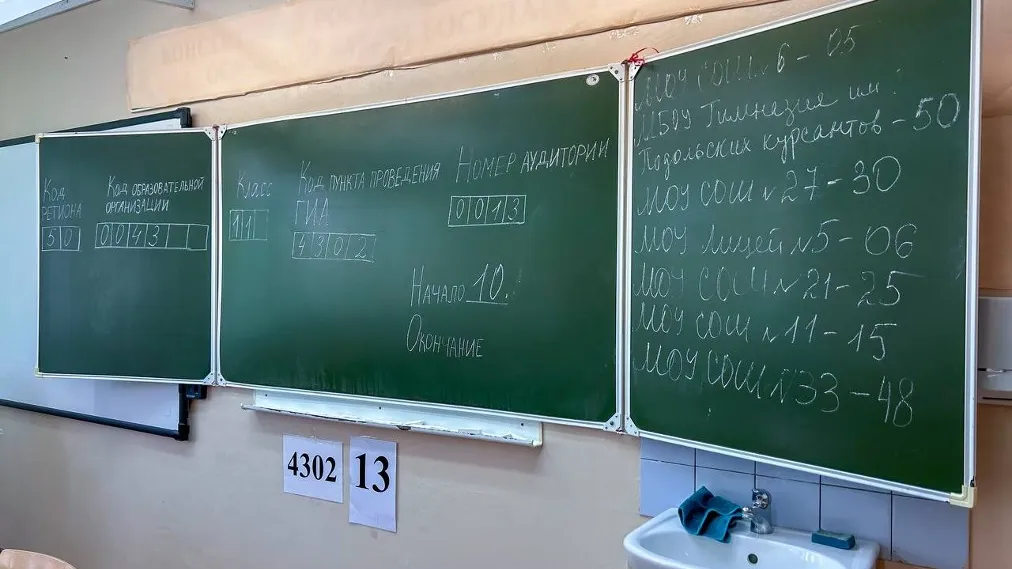 Код
региона
50
Код образовательной
организации
0043
Класс
11
Код пункта проведения
ГИА
4302
Номер аудитории
0013
Начало 10.
Окончание
МОУ СОШ №6 - 05
МБОУ Гимназия им.
Подольских курсантов - 50
МОУ СОШ №27 - 30
МОУ Лицей №5 - 06
МОУ СОШ №21 - 25
МОУ СОШ №11 - 15
МОУ СОШ №33 - 48
4302
13